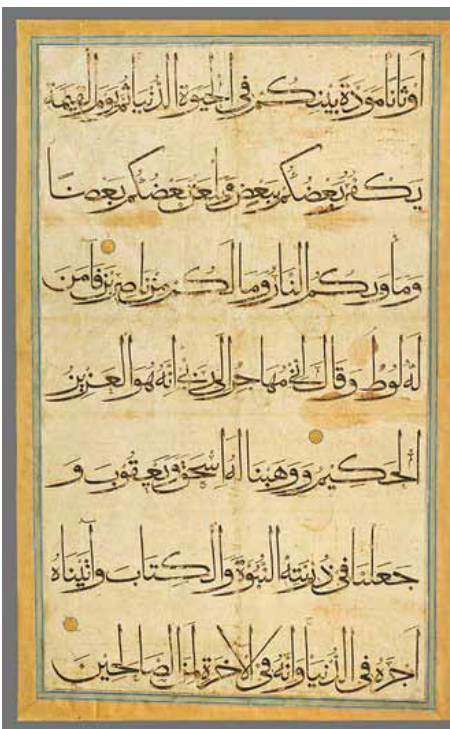 اَوثانا مودة بينكم في الحيوة الدنيا ثم يوم القيمة
يكفر بعضكم ببعض ويلعن بعضكم بعضا
وماويكم النار وما لكم من ناصرين فامن
له لوط وقال اني مهاجر الى ربي انه هو العزيز
الحكيم ووهبنا له اسحق ويعقوب و
جعلنا في ذريته النبوة والكتاب واتيناه
اجره في الدنيا وانه في الاخرة لمن الصالحين